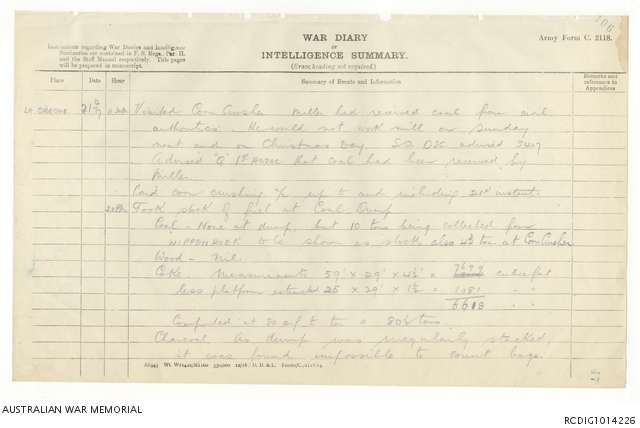 106
WAR DIARY
or
INTELLIGENCE SUMMARY.
(Erase heading not required.)
Army Form C. 2118.
Instructions regarding War Diaries and Intelligence
Summaries are contained in F. S. Regs., Part II.
and the Staff Manual respectively. Title pages
will be prepared in manuscript.
Place
Date
Hour
Summary of Events and Information
Remarks and
reference to
Appendices
Visited Corn Crusher. Miller had received coal from civil
authorities. He would not work mill on Sunday
next and on Christmas Day. S.O. DSC advised
Advised 'Q' 1st that coal had been received by
Miller
Paid corn crushing a/c up to and including 21st instant.
Took stock of fuel at Coal Dump
Coal - None at dump, but 10 tons being collected from
to be shown as stock also 4½ ton at Corn Crusher
Wood - nil.
Coke. Measurements 59' x 29' x 4½' = cubic feet
less platform 25 x 29' x 1½' = 1081 " "
6613 " "
Computed at 80 c.f. to ton = tons
Charcoal As dump was irregularly stacked,
it was found impossible to count bags.
AUSTRALIAN WAR MEMORIAL
RCDIG1014226